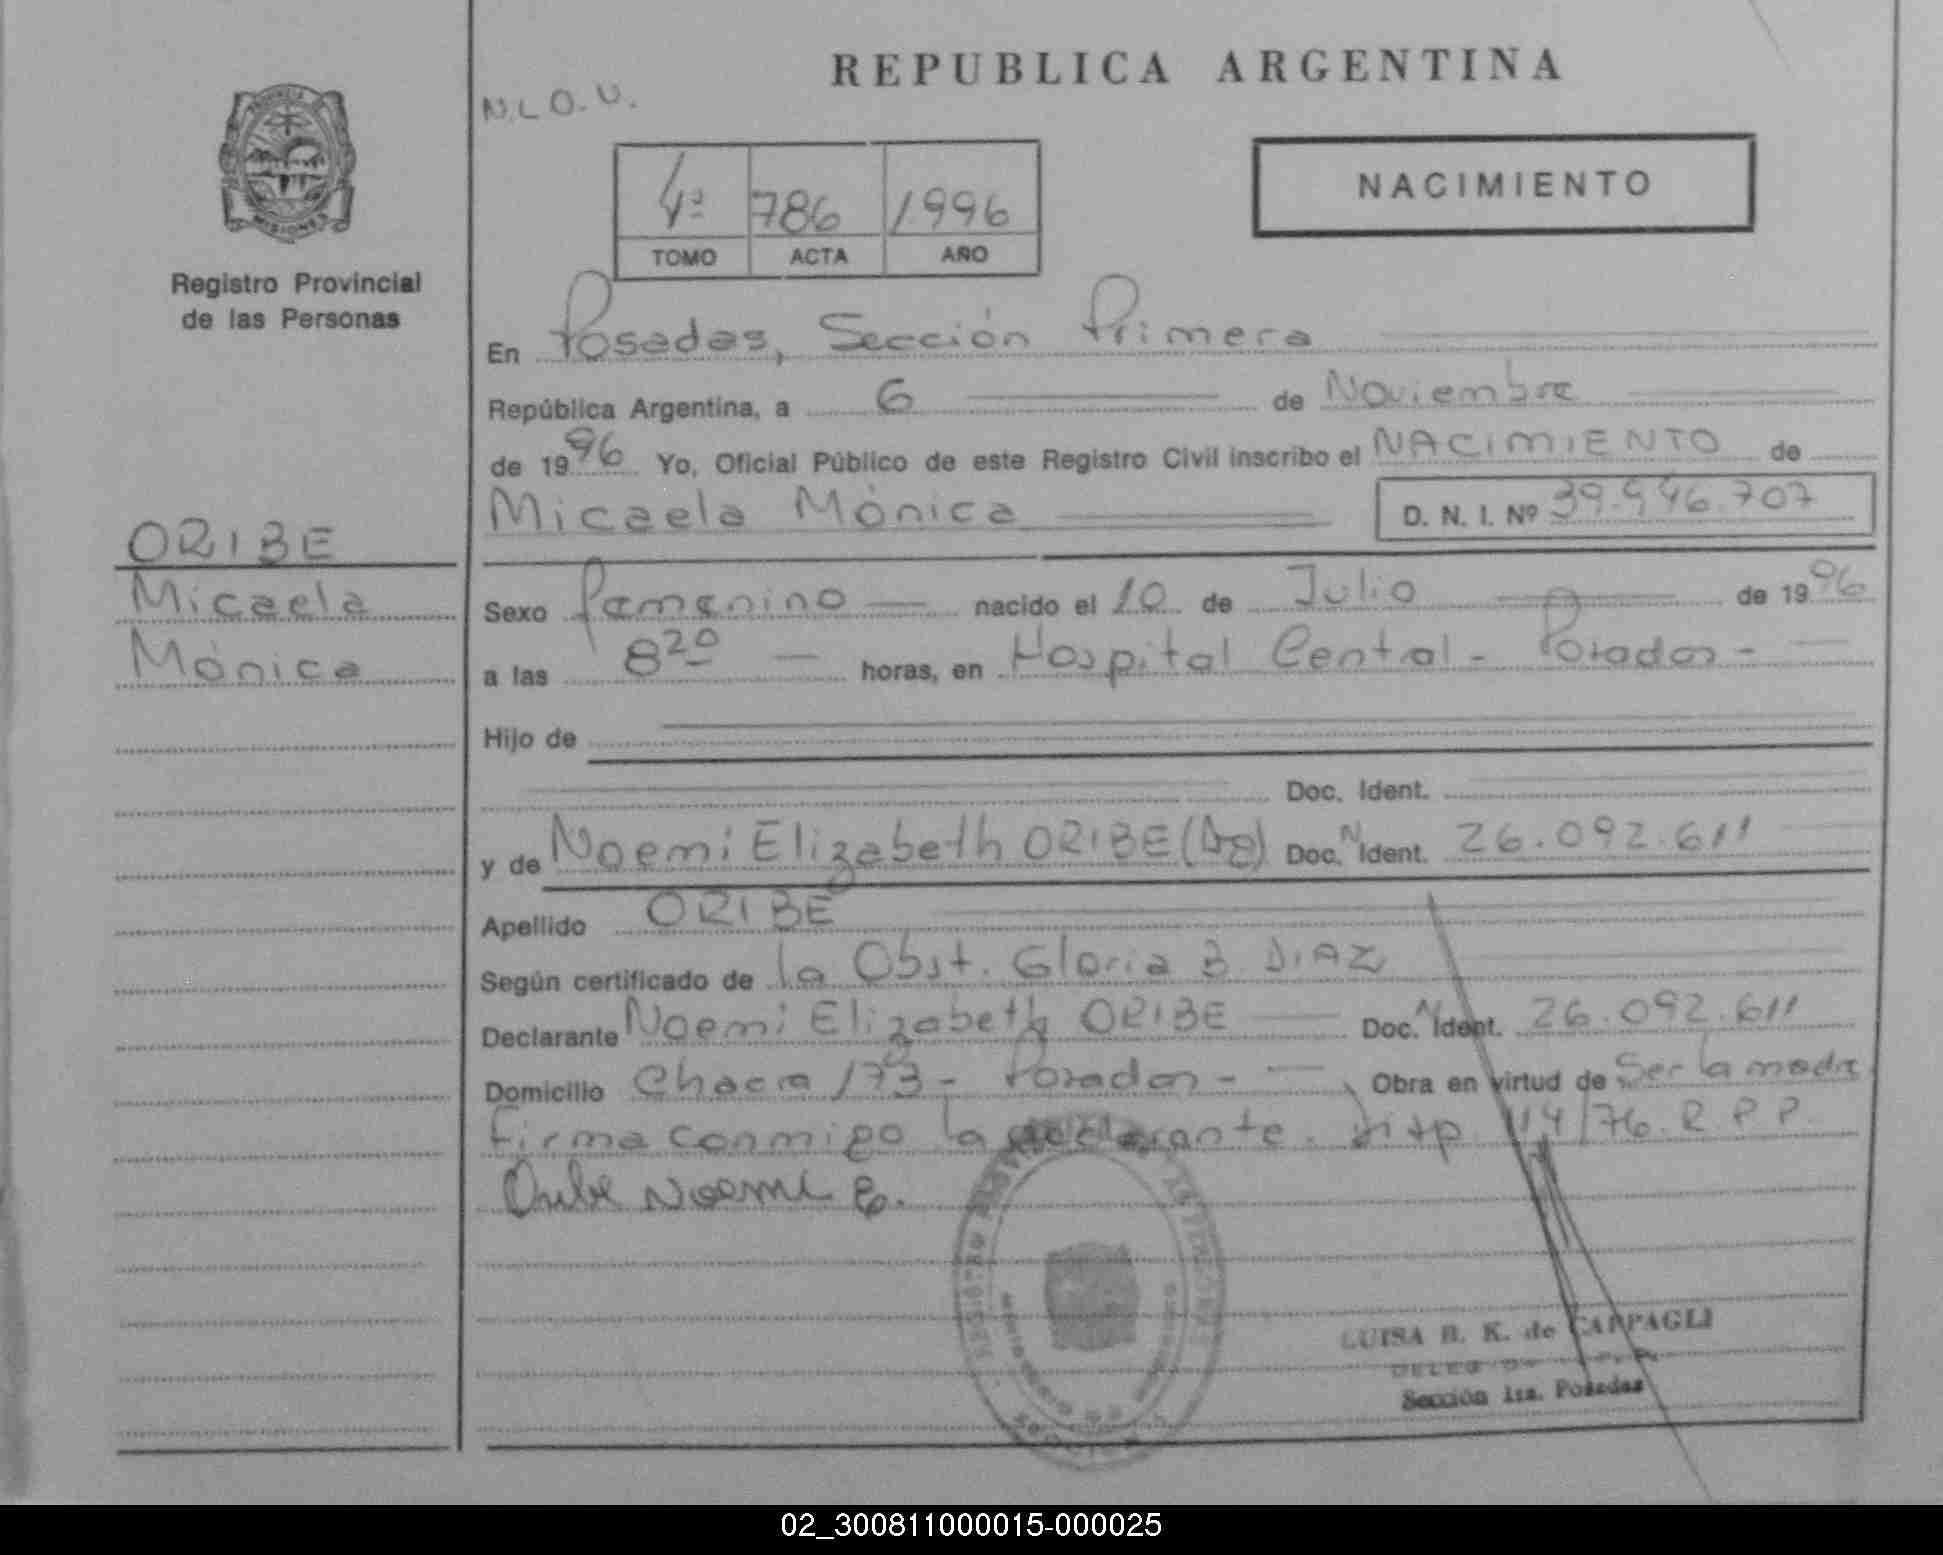 REPUBLICA ARGENTINA
N.L.O.U.
PROVINCIA
MISIONES
Registro Provincial
de las Personas
4º 786 1996
TOMO ACTA AÑO
NACIMIENTO
En Posadas, Sección Primera
República Argentina, a 6 de Noviembre
de 1996 Yo, Oficial Público de este Registro Civil inscribo el NACIMIENTO de
Micaela Mónica D. N. I. Nº 39.996.707
ORIBE
Micaela
Mónica
Sexo femenino nacido el 10 de Julio de 1996
a las 8 20 horas, en Hospital Central - Posadas -
Hijo de
Doc. Ident.
y de Noemi Elizabeth ORIBE Doc. N Ident. 26.092.611
Apellido ORIBE
Según certificado de la Obst. Gloria B. DIAZ
Declarante Noemi Elizabeth ORIBE Doc. N Ident. 26.092.611
Domicilio Chacra 173 - Posadas - Obra en virtud de Ser la madre
Firma conmigo la declarante. Disp. 114/76. R.P.P.
Oribe Noemi E.
LUISA R. K. de CAPPAGLI
Sección 1ra. Posadas
02_300811000015-000025